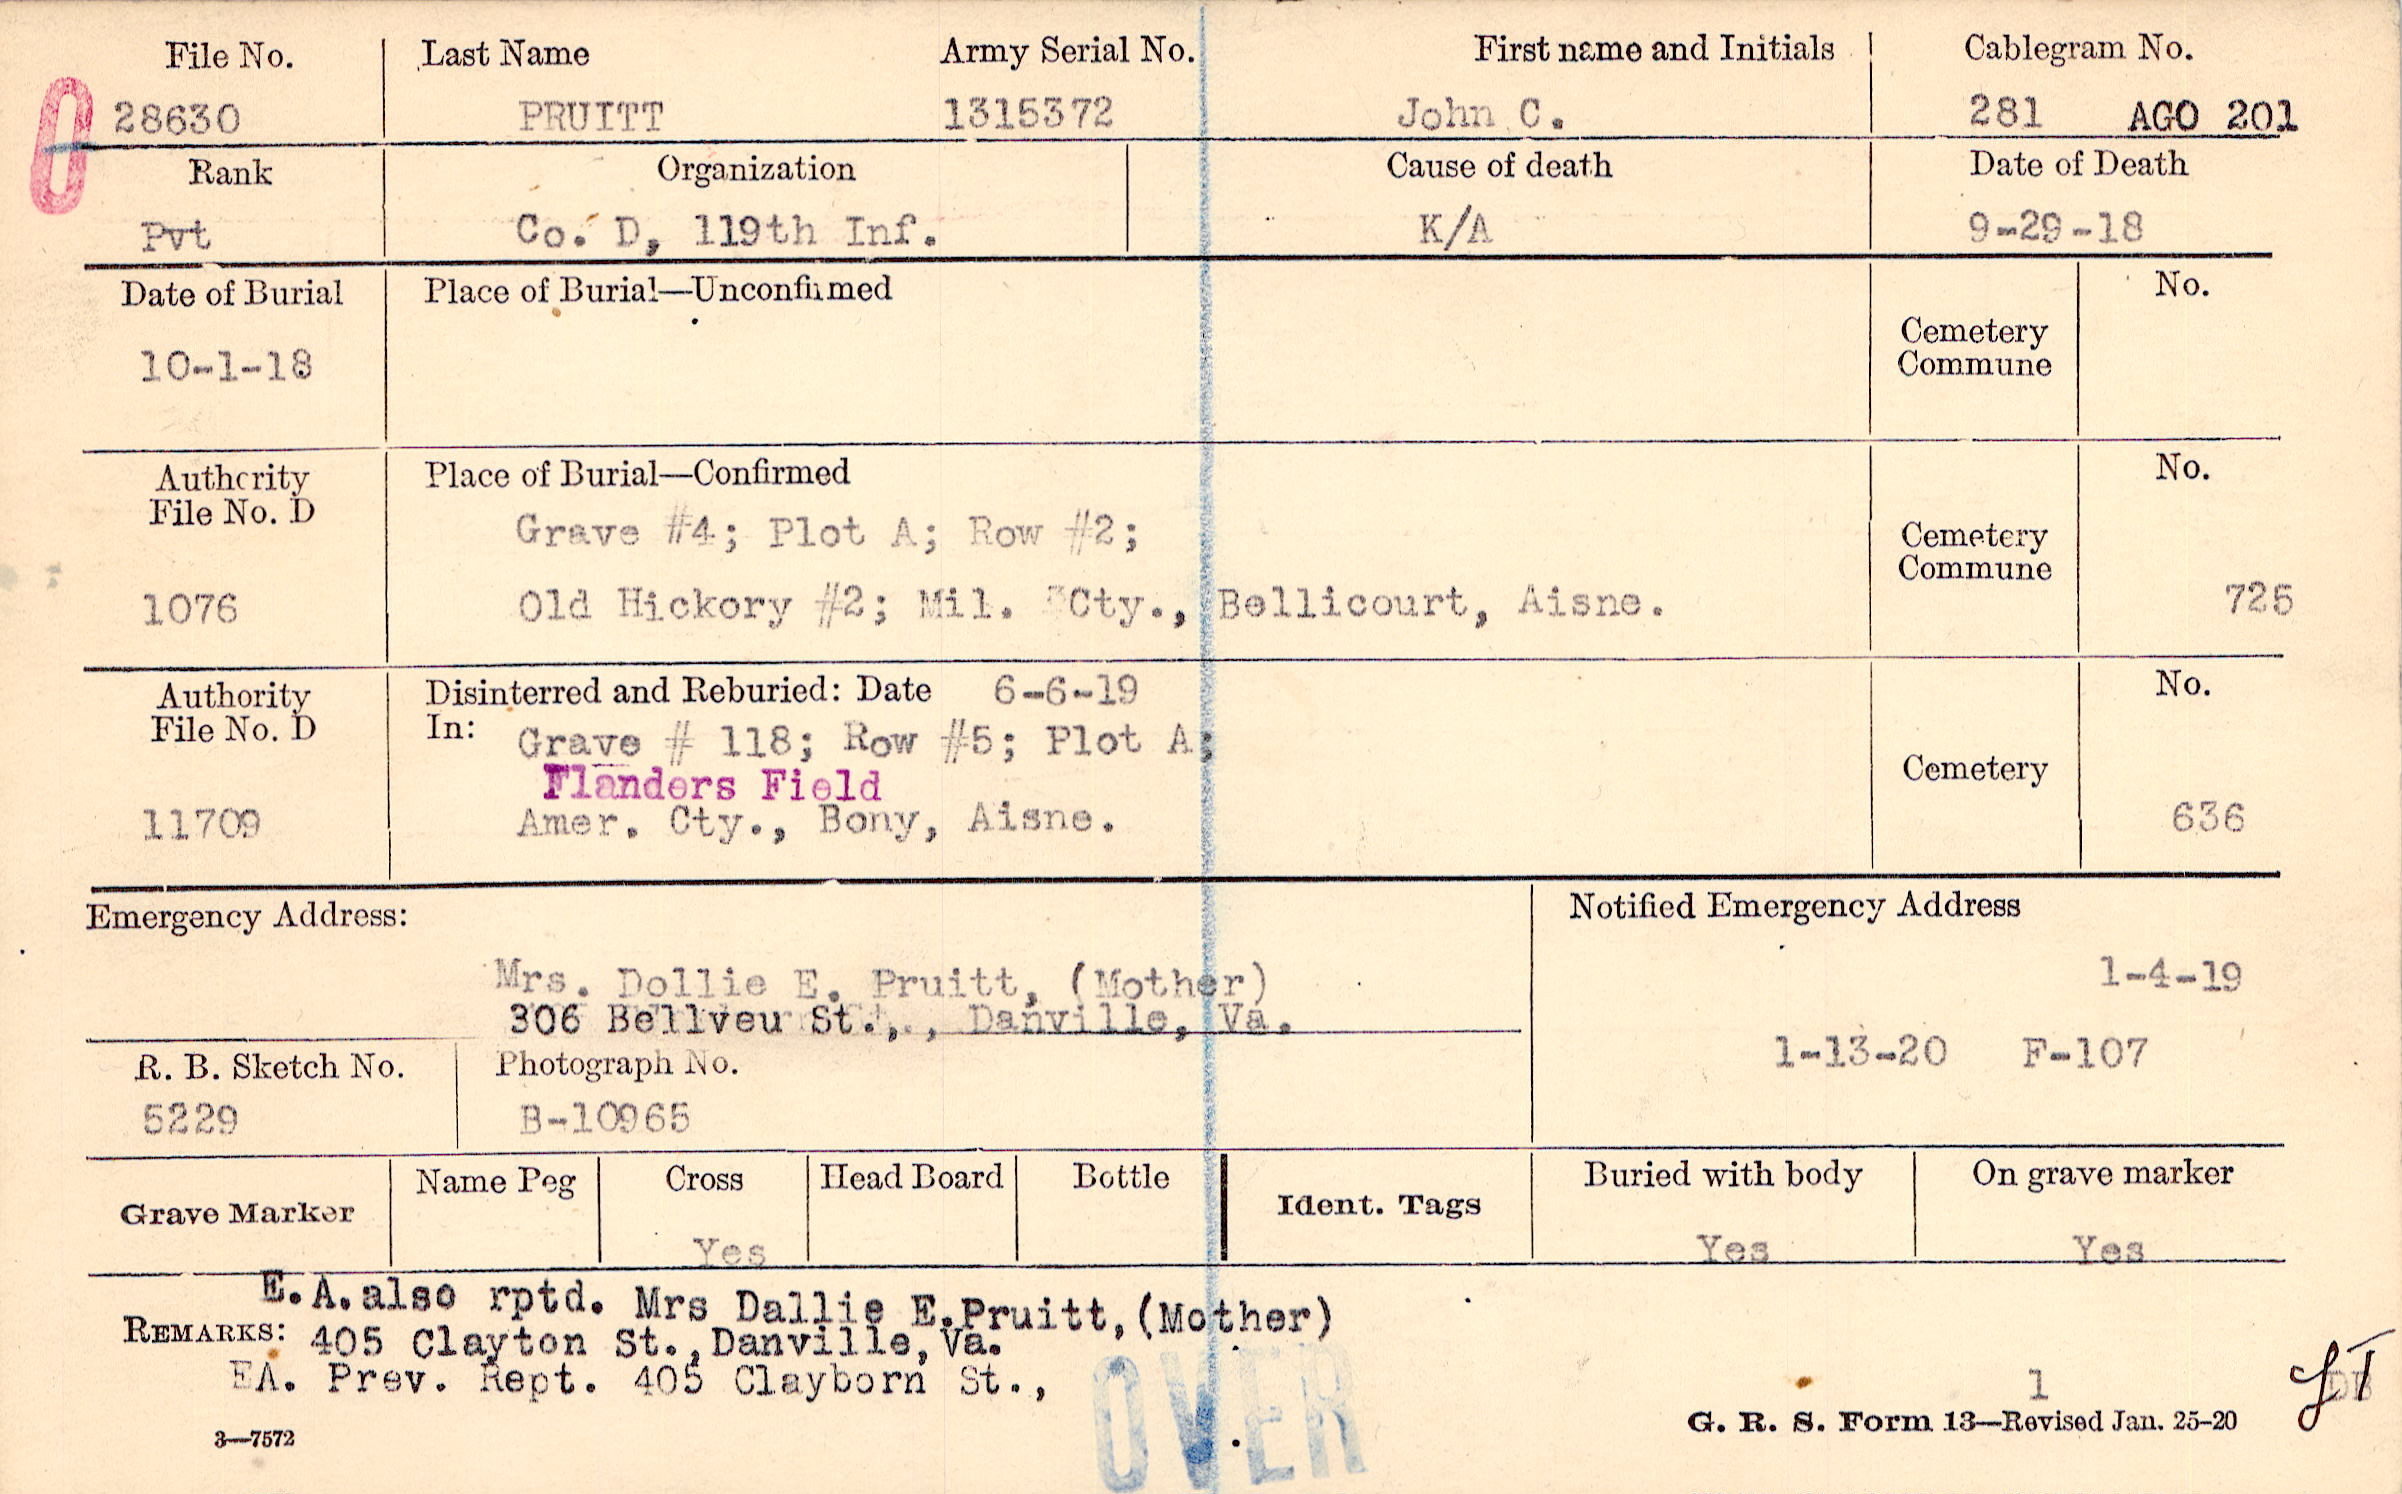 File No. Last Name Army Serial No. First name and Initials Cablegram No.
28630 PRUITT 1315372 John C. 281 AGO 201
Rank Organization Cause of death Date of Death
Pvt Co. D, 119th Inf. K/A 9-29-18
Date of Burial Place of Burial—Unconfirmed No.
Cemetery
Commune
10-1-18
Authority Place of Burial—Confirmed No.
File No. D
Grave #4; Plot A; Row #2;
Cemetery
Commune
1076 Old Hickory #2; Mil. Cty., Bellicourt, Aisne. 725
Authority Disinterred and Reburied: Date 6-6-19 No.
File No. D In: Grave # 118; Row #5; Plot A;
Flanders Field Cemetery
11709 Amer. Cty., Bony, Aisne. 636
Emergency Address: Notified Emergency Address
Mrs. Dollie E. Pruitt, (Mother) 1-4-19
306 Bellveu St.,., Danville, Va.
1-13-20 F-107
R. B. Sketch No. Photograph No.
5229 B-10965
Grave Marker Name Peg Cross Head Board Bottle Ident. Tags Buried with body On grave marker
Yes Yes Yes
E.A.also rptd. Mrs Dallie E.Pruitt,(Mother)
REMARKS: 405 Clayton St.,Danville,Va.
EA. Prev. Rept. 405 Clayborn St.,
1
OVER
3—7572
G. R. S. Form 13—Revised Jan. 25-20